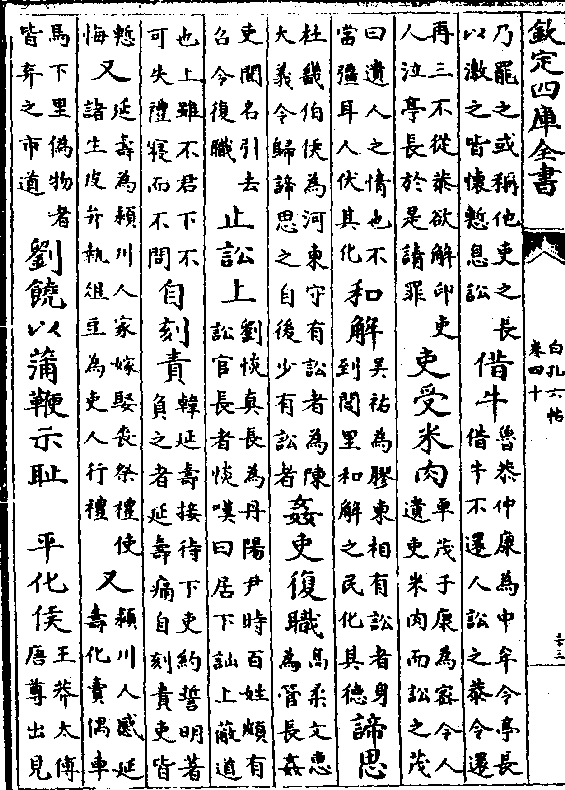 欽定四庫全書
白孔六帖
卷四十
乃罷之或稱他吏之長
以激之皆懷慙息訟
借牛
魯恭仲康為中牟令亭長
借牛不還人訟之恭令還
再三不從恭欲解印吏
人泣亭長於是請罪
吏受米肉
卓茂子康為宻令人
遺吏米肉而訟之茂
曰遺人之情也不
當彊耳人伏其化
和解
吳祐為膠東相有訟者身
到閭里和解之民化其德
諦思
杜畿伯侯為河東守有訟者為陳
大義令歸諦思之自後少有訟者
姦吏復職
高柔文惠
為管長姦
吏聞名引去
召令復職
止訟上
劉惔真長為丹陽尹時百姓頗有
訟官長者惔嘆曰居下訕上蔽道
也上雖不君下不
可失禮寢而不問
自刻責
韓延壽接待下吏約誓明著
負之者延壽痛自刻責吏皆
慙
悔
又
延壽為潁川人家嫁娶喪祭禮使
諸生皮弁執俎豆為吏人行禮
又
潁川人感延
壽化賣偶車
馬下里偽物者
皆弃之市道
劉饒以蒲鞭示耻
平化侯
王莽太傅
唐尊出見